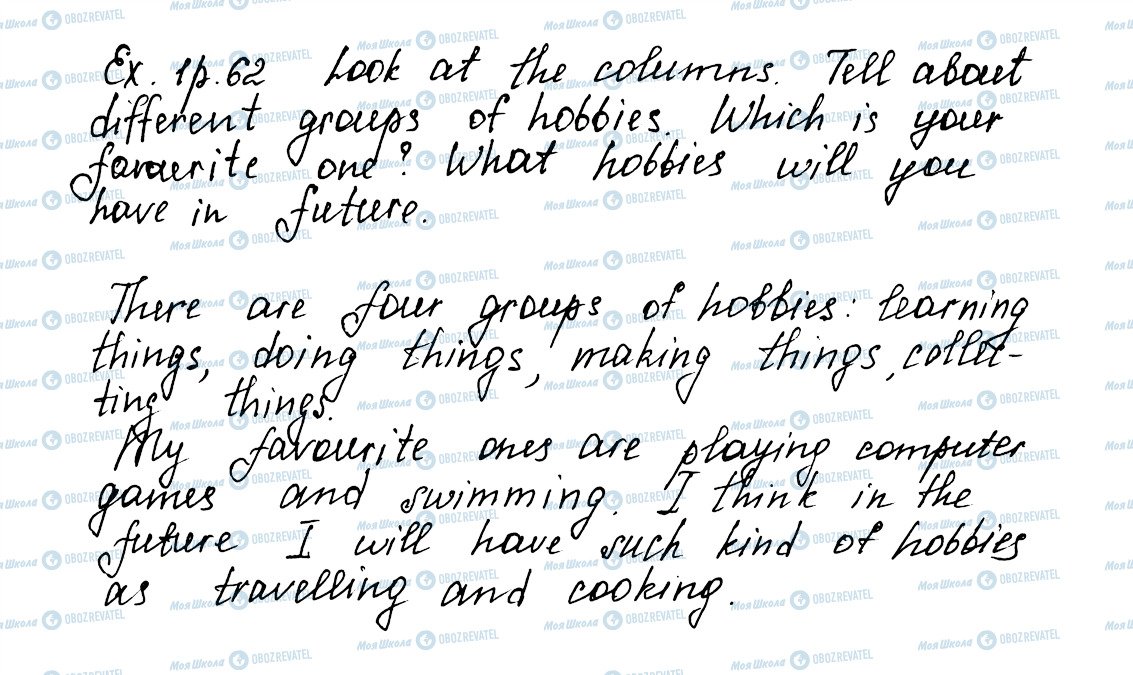 Ex. 1p.62 Look at the columns. Tell about
different groups of hobbies. Which is your
favourite one? What hobbies will you
have in future.
There are four groups of hobbies: learning
things, doing things, making things, collec-
ting things.
My favourite ones are playing computer
games and swimming. I think in the
future I will have such kind of hobbies
as travelling and cooking.